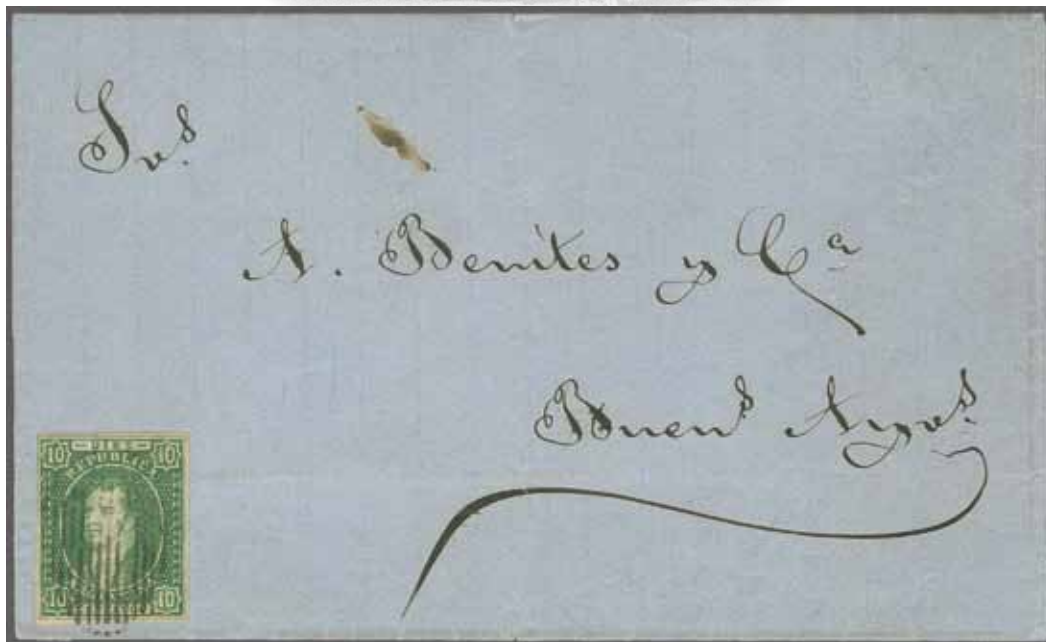 Srs.
A. Benites y Ca
Buens Ayrs.
10 DIEZ 10
REPUBLIC
10 10